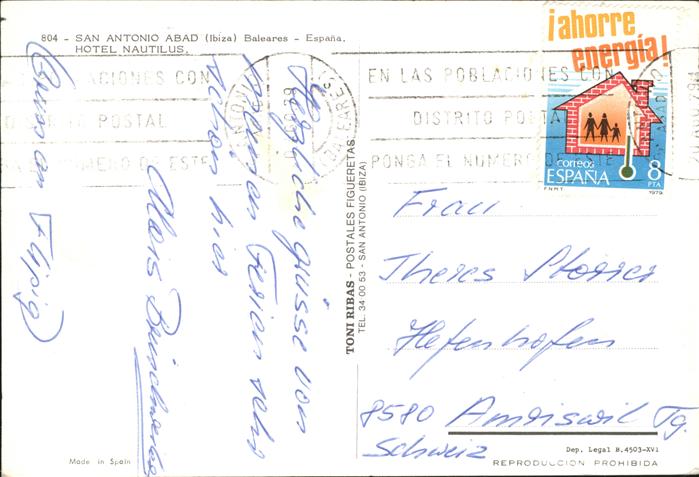 804 - SAN ANTONIO ABAD (Ibiza) Baleares - España.
HOTEL NAUTILUS.
¡ahorre
energía!
correos
ESPAÑA
8
PTA
F.N.M.T.
1979
EN LAS POBLACIONES CON
DISTRITO POSTAL
PONGA EL NUMERO DE ESTE
Herzliche Grüsse von
meinen Ferien sehr
schön hier
Alois
Gruss an
TONI RIBAS - POSTALES FIGUERETAS
TEL. 34 00 53 - SAN ANTONIO (IBIZA)
Frau
Theres Storrer
Hefenhofen
8580 Amriswil Tg.
Schweiz
Made in Spain
Dep. Legal B.4503-XVI
REPRODUCCION PROHIBIDA